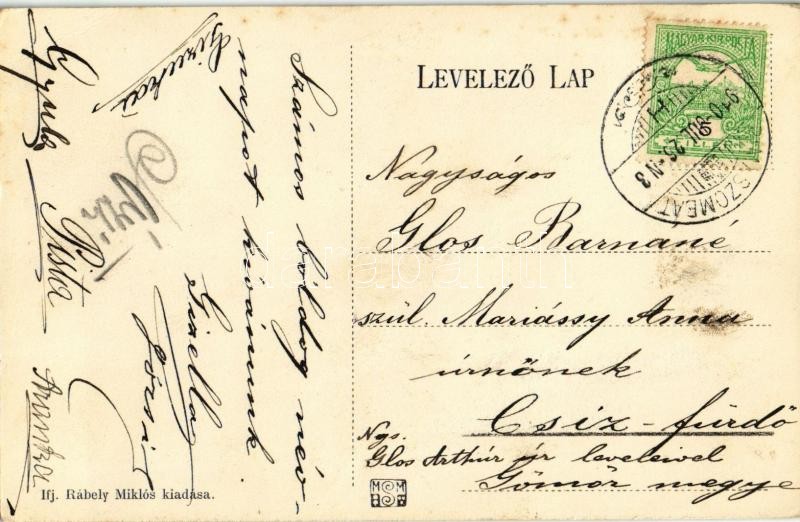 LEVELEZŐ LAP
MAGYAR KIR. POSTA
SZOMBAT
910 JUL. 25. N 3
Nagyságos
Glos Barnáné
szül. Mariássy Anna
úrnőnek
Csíz-fürdő
Ngs.
Glos Arthúr úr levelével
Gömör megye
Számos boldog név-
napot kivánunk
Gizella
Józsi
Gizuka
Gyula
Pista
Aranka
Ifj. Rábely Miklós kiadása.
MSM